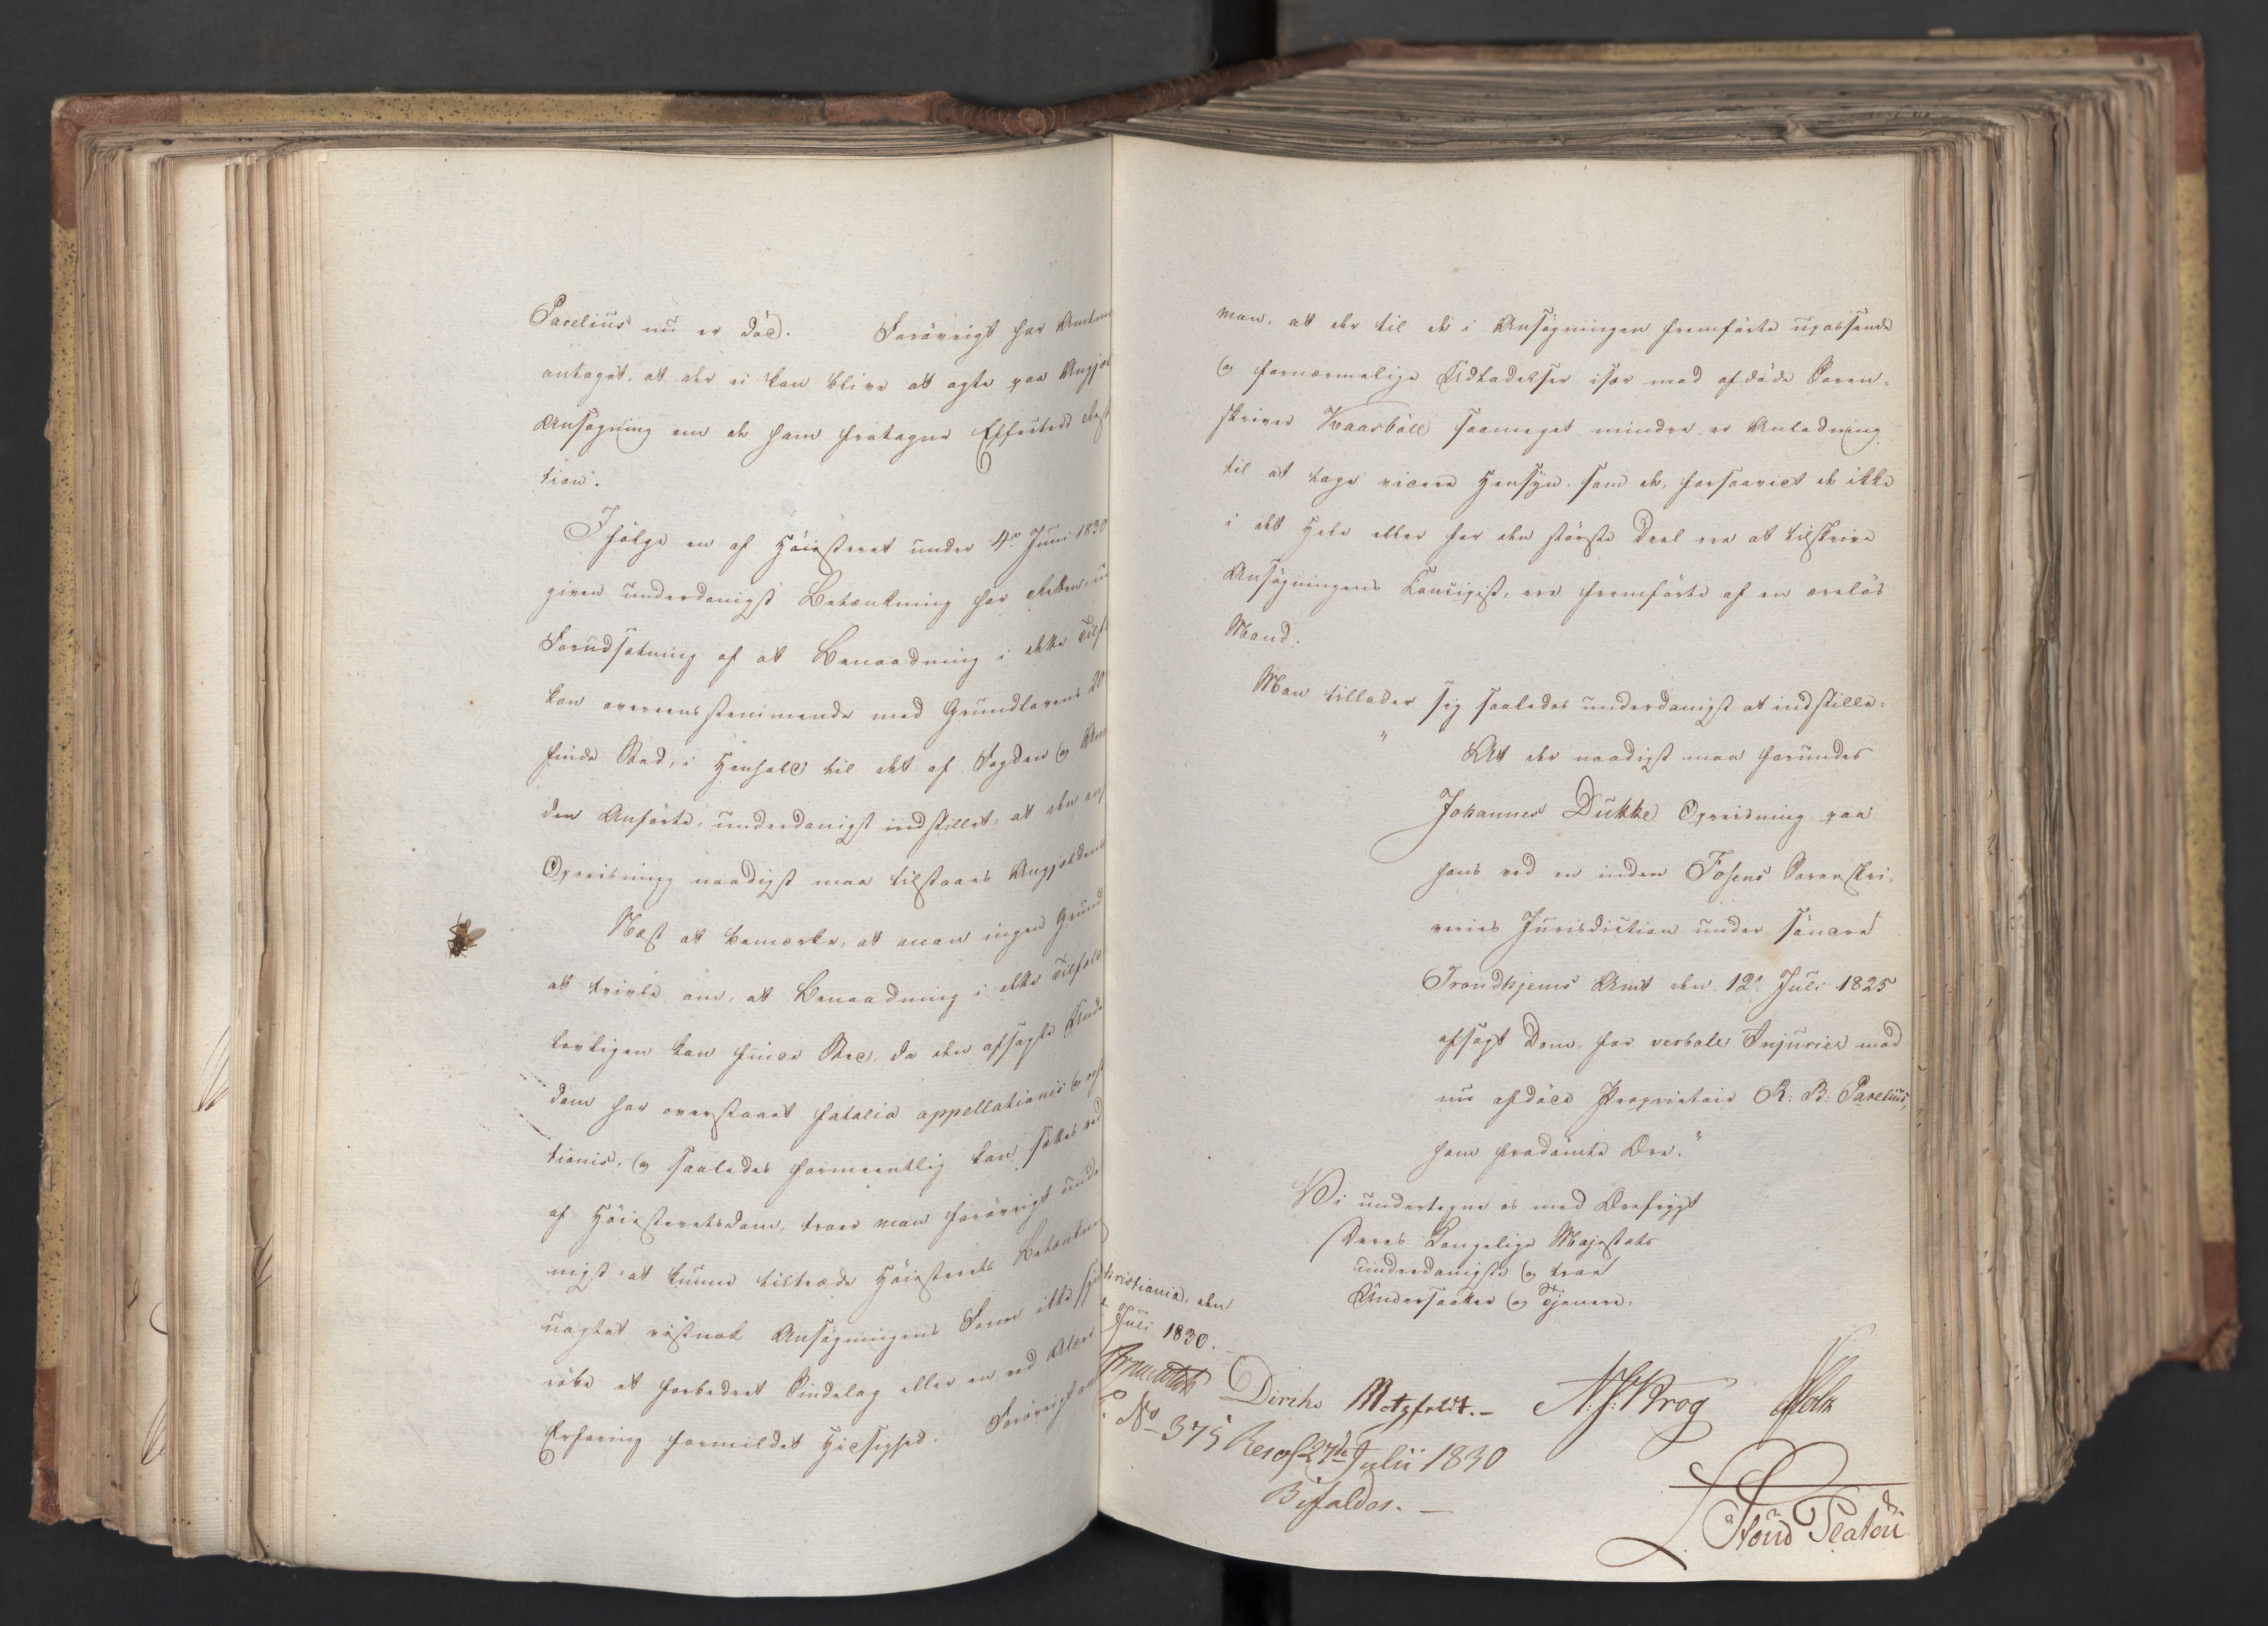 Parelius nu er död. Forövrigt har Amtm
antaget, at der ei kan blive at agte paa Angjel
Ansögning om de ham fratagne Effecters Resti
tion.
Ifölge en af Höiesteret under 4de Juni 1830
given underdanigst Betænkning har Retten, un
Forudsætning af at Benaadning i dette Tilf
kan overeensstemmende med Grundlovens 20
finde Sted, i Henhold til det af Fogden og Amt
den Anförte, underdanigst indstillet, at den ans
Opreisning naadigst maa tilstaaes Angjeldende
Næst at bemærke, at man ingen Grund
at tvivle om, at Benaadning i dette Tilfæld
lovligen kan finde Sted, da den afsagte Unde
dom har overstaaet fatalia appellationis og rest
tionis, og saaledes formeentlig kan sættes ved
af Höiesteretsdom, troer man forövrigt unde
nigst at kunne tiltræde Höiesterets Betænkn
uagtet vistnok Ansögningens Form ikke syn
røbe et forbedret Sindelag eller en ved Alder
Erfaring formildet Hidsighed. Forövrigt an
man, at der til de i Ansögningen fremförte upassende
og fornærmelige Udladelser især mod afdöde Soren-
skriver Kaarböll saameget mindre er Anledning
til at tage videre Hensyn, som de, forsaavidt de ikke
i det Hele eller for den störste Deel ere at tilskrive
Ansögningens Concipist, ere fremförte af en æreløs
Mand.
Man tillader sig saaledes underdanigst at indstille:
" At der naadigst maa forundes
Johannes Dukke Opreisning paa
hans ved en inden Fosens Sorenskri-
veries Jurisdiction under söndre
Trondhjems Amt den 12te Juli 1825
afsagt Dom, for verbale Injurier mod
nu afdöde Proprietair R: B: Parelius,
ham fradömte Ære."
Vi undertegne os med Ærefrygt
Deres Kongelige Majestæts
underdanigste og troe
Undersaatter og Tjenere.
Christiania, den
Juli 1830.
Diriks Motzfeldt. N. J. Krog Holst
No 375 Resol 27de Julii 1830
Bifaldes.
Stoud Platou